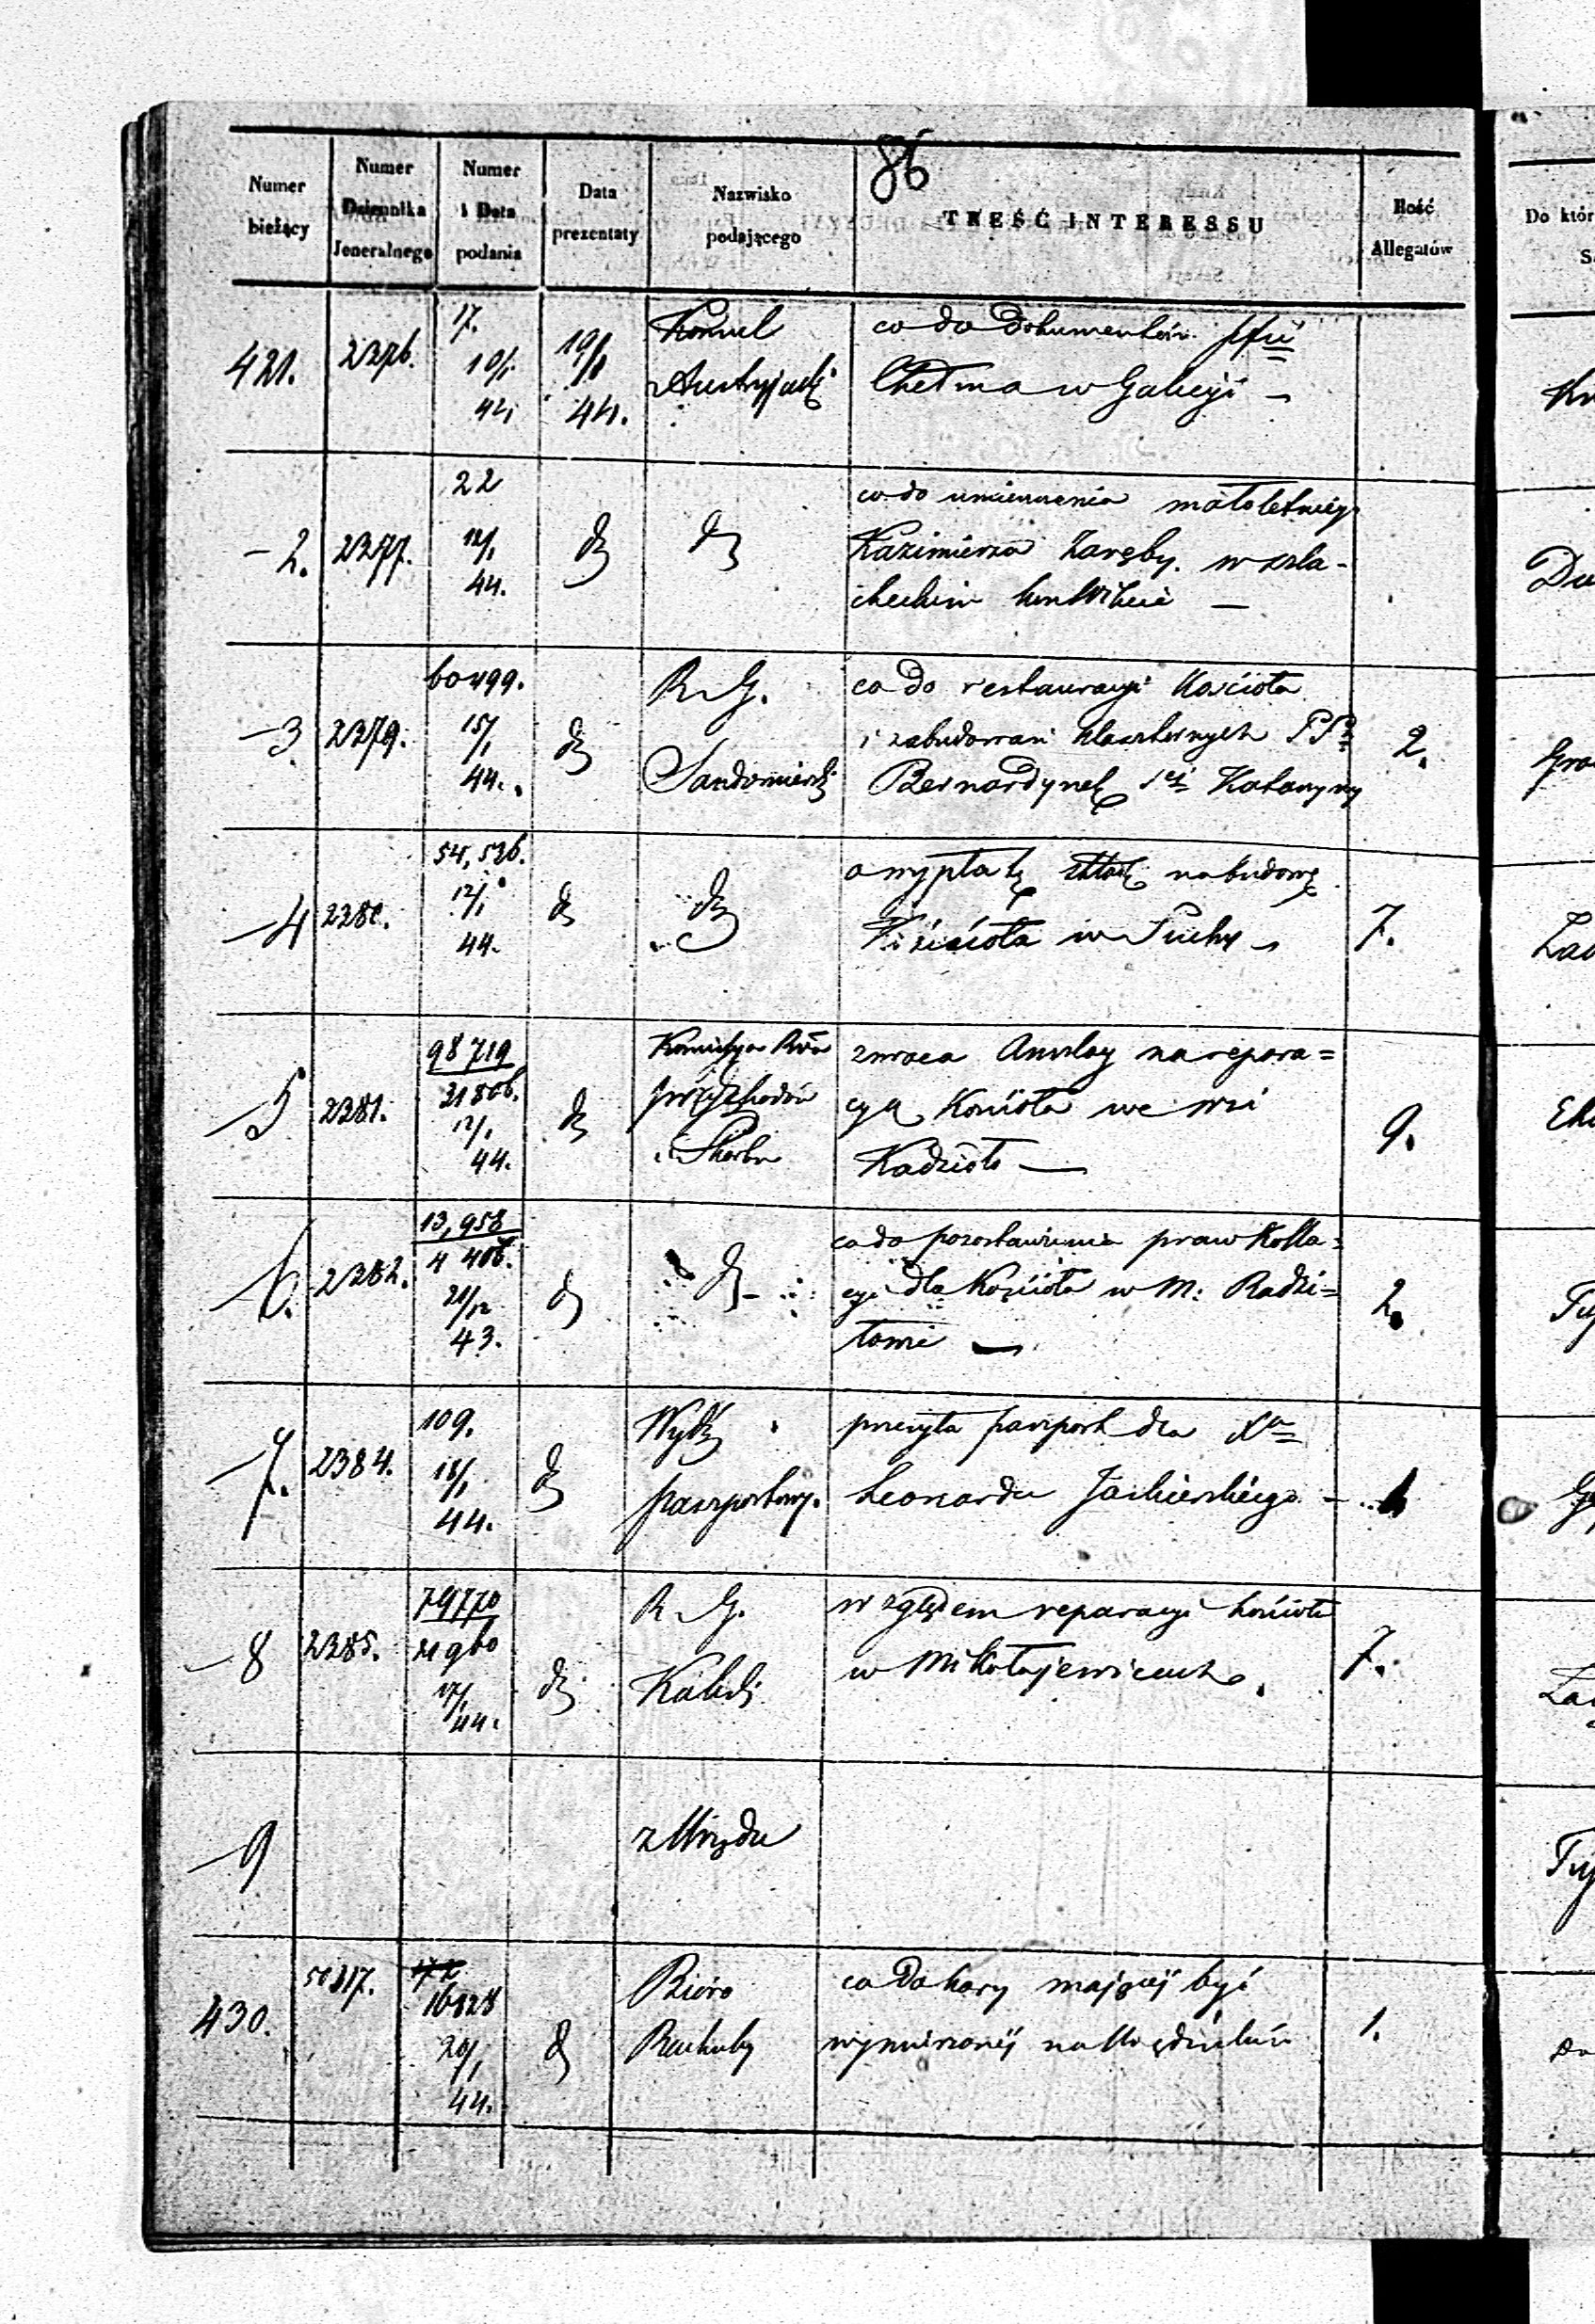 86
Numer bieżący
Numer Dziennika Jeneralnego
Numer i Data podania
Data prezentaty
Nazwisko podającego
TREŚĆ INTERESSU
Ilość Allegatów
Do któr
421.
2276.
17.
10/1
44
19/1
44.
Konsul
Austryjacki
co do dokumentów
Chełma w Galicyi –
– 2.
2377.
22
12/1
44.
dº
dº
co do umieszczenia małoletniego
Kazimierza Zaręby. w szla-
checkim
Du
– 3
2279.
60499.
15/1
44.
dº
R. G.
Sandomierski
co do restauracyi Kościoła
i zabudowań klasztornych PP.
Bernardynek S. Katarzyny
2.
– 4
2280.
54,526.
12/1
44.
dº
dº
o wypłatę składki na budowę
Kościoła w
7.
– 5
2281.
98719
21806.
12/1
44.
dº
Komissya Rzą
Przychodów
i Skarbu
zwraca Anszlag na repera=
cyą Kościoła we wsi
Kadzidło —
9.
– 6.
2282.
13,958
4 406.
21/12
43.
dº
dº
co do pozostawienia praw Kolla=
cyi dla Kościoła w M. Radzi=
łowie —
2.
– 7.
2384.
109.
18/1
44.
dº
Wydz
paszportowy.
przesyła paszport dla Xa
Leonarda
1
– 8
2385.
79770
21960
17/1
44.
dº
R. G.
Kaliski
względem reparacyi kościoła
w Mikołajewicach.
7.
– 9
z Urzędu
430.
16828
20/1
44.
dº
Bióro
Rachuby
co do kary mającéj być
wymierzonéj na
1.